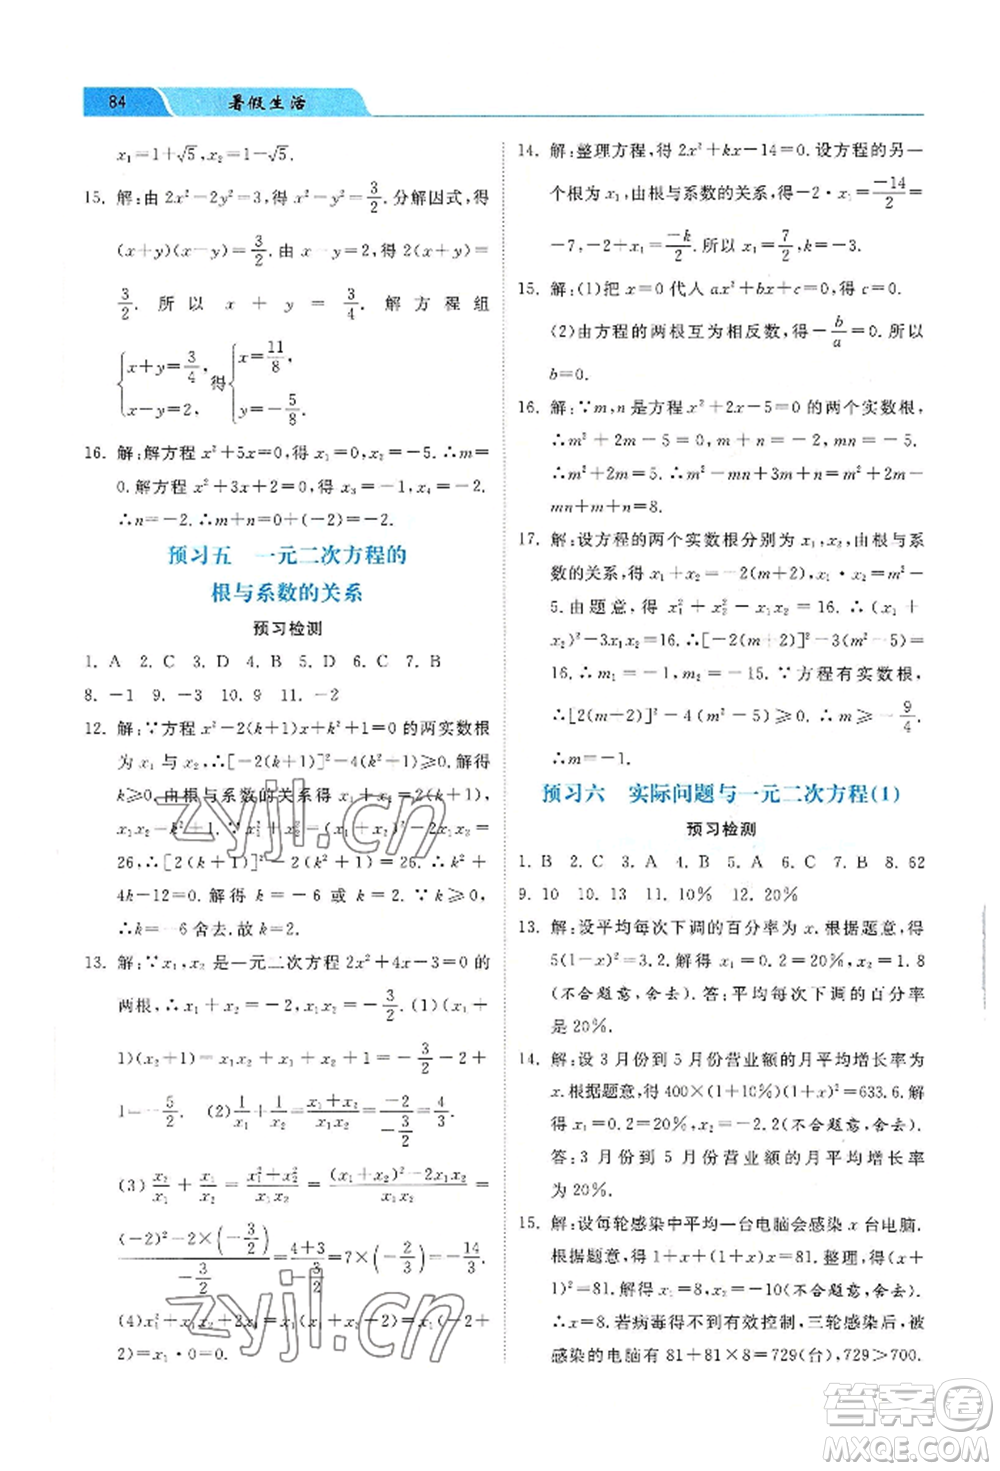 84 暑假生活
x₁=1+√5,x₂=1-√5.
15. 解:由 2x²-2y²=3,得 x²-y²=3/2.分解因式,得
(x+y)(x-y)=3/2.由 x-y=2,得 2(x+y)=
3/2. 所以 x+y=3/4. 解方程组
{x+y=3/4, x-y=2, 得 {x=11/8, y=-5/8.
16. 解:解方程 x²+5x=0,得 x₁=0,x₂=-5.∴m=
0.解方程 x²+3x+2=0,得 x₃=-1,x₄=-2.
∴n=-2.∴m+n=0+(-2)=-2.
预习五 一元二次方程的
根与系数的关系
预习检测
1. A 2. C 3. D 4. B 5. B 6. C 7. B
8. -1 9. -3 10. 9 11. -2
12. 解:∵方程 x²-2(k+1)x+k²-1=0 的两实数根
为 x₁ 与 x₂,∴[-2(k+1)]²-4(k²-1)≥0.解得
k≥-1.由根与系数的关系得 x₁+x₂=2(k+1),
x₁x₂=k²-1.∵x₁²+x₂²=(x₁+x₂)²-2x₁x₂=
26,∴[2(k+1)]²-2(k²-1)=26.∴k²+
4k-12=0.解得 k=-6 或 k=2.∵k≥-1,
∴k=-6 舍去.故 k=2.
13. 解:∵x₁,x₂ 是一元二次方程 2x²+4x-3=0 的
两根,∴x₁+x₂=-2,x₁x₂=-3/2.(1)(x₁+
1)(x₂+1)=x₁x₂+x₁+x₂+1=-3/2-2+
1=-5/2. (2)1/x₁+1/x₂=(x₁+x₂)/(x₁x₂)=(-2)/(-3/2)=4/3.
(3)x₂/x₁+x₁/x₂=(x₁²+x₂²)/(x₁x₂)=((x₁+x₂)²-2x₁x₂)/(x₁x₂)=
((-2)²-2×(-3/2))/(-3/2)=(4+3)/(-3/2)=7×(-2/3)=-14/3.
(4)x₁²+x₁x₂+2x₁=x₁(x₁+x₂+
2)=x₁·0=0.
14. 解:整理方程,得 2x²+kx-14=0.设方程的另一
个根为 x₁,由根与系数的关系,得-2·x₁=-14/2=
-7,-2+x₁=-k/2.所以 x₁=7/2,k=-3.
15. 解:(1)把 x=0 代人 ax²+bx+c=0,得 c=0.
(2)由方程的两根互为相反数,得-b/a=0.所以
b=0.
16. 解:∵m,n 是方程 x²+2x-5=0 的两个实数根,
∴m²+2m-5=0,m+n=-2,mn=-5.
∴m²=5-2m.∴m²-mn+3m+n=5-2m-
mn+3m+n=5+m+n-mn=5-2+5=
8.
17. 解:设方程的两个实数根分别为 x₁,x₂,由根与系
数的关系,得 x₁+x₂=-2(m+2),x₁x₂=m²-
5.由题意,得 x₁²+x₂²=x₁x₂+16.∴(x₁+
x₂)²-3x₁x₂=16.∴[-2(m+2)]²-3(m²-5)=
16.解得 m₁=-1,m₂=-15.∵方程有实数根,
∴[2(m+2)]²-4(m²-5)≥0.∴m≥-9/4.
∴m=-1.
预习六 实际问题与一元二次方程(1)
预习检测
1. B 2. C 3. A 4. B 5. A 6. C 7. B 8. 62
9. 10 10. 13 11. 10% 12. 20%
13. 解:设平均每次下调的百分率为 x,根据题意,得
5(1-x)²=3.2.解得 x₁=0.2=20%,x₂=1.8
(不合题意,舍去).答:平均每次下调的百分率
是 20%.
14. 解:设 3 月份到 5 月份营业额的月平均增长率为
x.根据题意,得 400×(1+10%)(1+x)²=633.6.解
得 x₁=0.2=20%,x₂=-2.2(不合题意,舍去).
答:3 月份到 5 月份营业额的月平均增长率
为 20%.
15. 解:设每轮感染中平均一台电脑会感染 x 台电脑.
根据题意,得 1+x+(1+x)x=81.整理,得(1+
x)²=81.解得 x₁=8,x₂=-10(不合题意,舍去).
∴x=8.若病毒得不到有效控制,三轮感染后,被
感染的电脑有 81+81×8=729(台),729>700.
zyjl.cn
zyjl.cn
答案圈
MXQE.COM